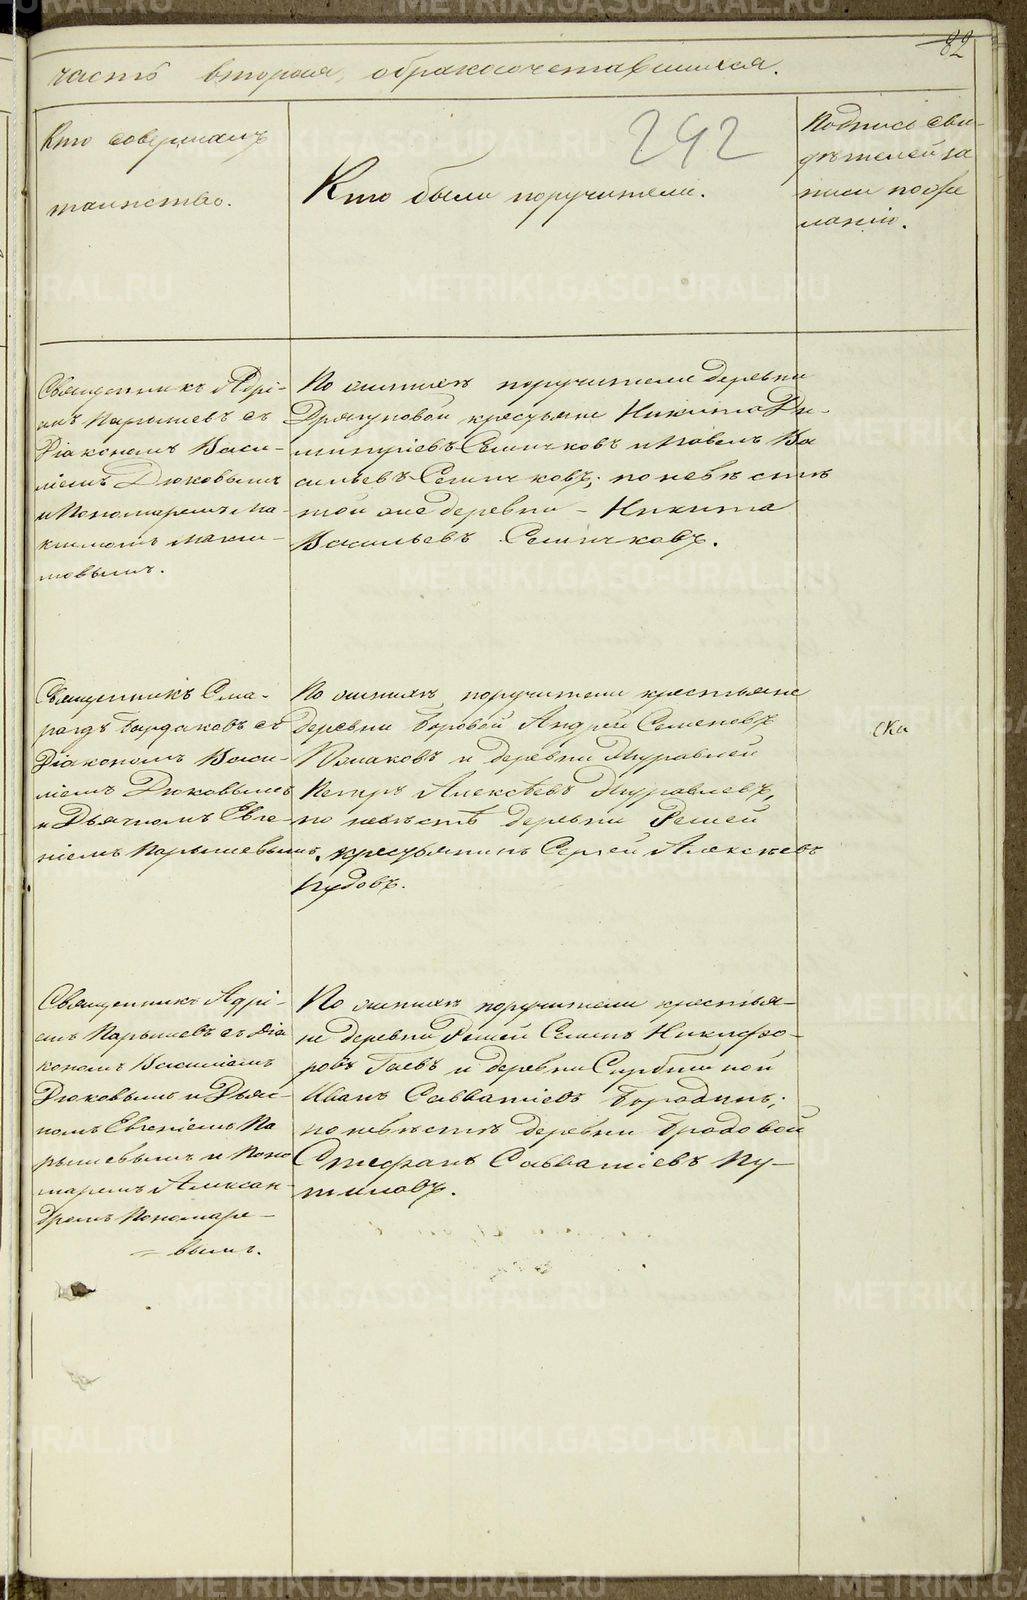 82
часть вторая, обракосочетавшихся.
Кто совершалъ
таинство.
242
Кто были поручители.
Подпись сви-
дѣтелей за
писи по же
ланію.
Священникъ Адрі-
анъ Парышевъ съ
Діакономъ Васи-
ліемъ Дюковымъ
и Пономаремъ Ма-
ксимомъ
По женихѣ поручители деревни
крестьяне Никита Ди-
митріевъ Семичковъ и Павелъ Ва
сильевъ Семичковъ; по невѣстѣ
той же деревни - Никита
Васильевъ Семичковъ.
Священникъ Сма-
рагдъ Бурдаковъ съ
Діакономъ Васи-
ліемъ Дюковымъ
и Дьячкомъ Евге-
ніемъ Парышевымъ.
По женихѣ поручители крестьяне
деревни Боровой Андрей Семеновъ
и деревни
Петръ Алексѣевъ Журавлевъ,
по невѣстѣ деревни Решей
крестьянинъ Сергей Алексѣевъ
Пудовъ.
Священникъ Адрі-
анъ Парышевъ съ Діа
кономъ Василіемъ
Дюковымъ и Дьяч-
комъ Евгеніемъ Па
рышевымъ и Поно
маремъ Алексан-
дромъ Пономаре-
= вымъ.
По женихѣ поручители крестья-
не деревни Решей Семенъ Никифо-
ровъ Гаевъ и деревни
Иванъ Савватіевъ Бородинъ;
по невѣстѣ деревни Бродовой
Стефанъ Савватіевъ Пу-
тиловъ.
METRIKI.GASO-URAL.RU